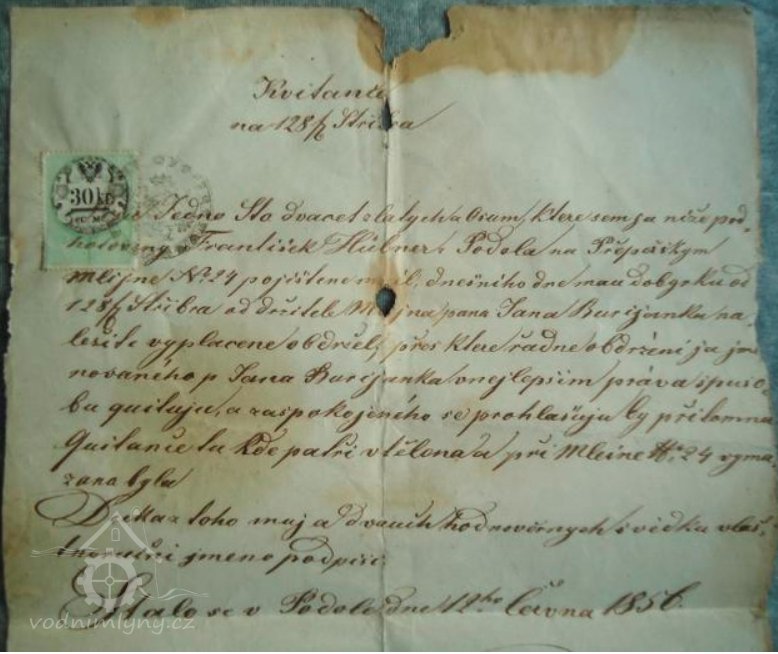 Kvitance
na 128 f Stříbra
30 kr
Jedno Sto dvacet zlatych a Osum, ktere sem ja niže pod
hotoveny František Hübner z Podola na Přepeřskym
Mlijne No. 24 pojištene měl, dnešniho dne mau dobgrku od
128 f Střibra od držitele Mlejna pana Jana Burijanka na
ležitě vyplacene obdržel, přes ktere řadne obdržení ja jme
novaného p Jana Burijanka vnejlepšim práva spuso-
bu quituju, a zaspokojeného se prohlašuju by přitomna
Quitance tu kde patři vtělena a při Mleine No. 24 vyma
zana byla
Dukaz toho muj a dvouch hodnověrnych svědku vlas-
tnoruční jmeno podpisi:
Stalo se v Podole dne 12ho června 1856.
vodnimlyny.cz